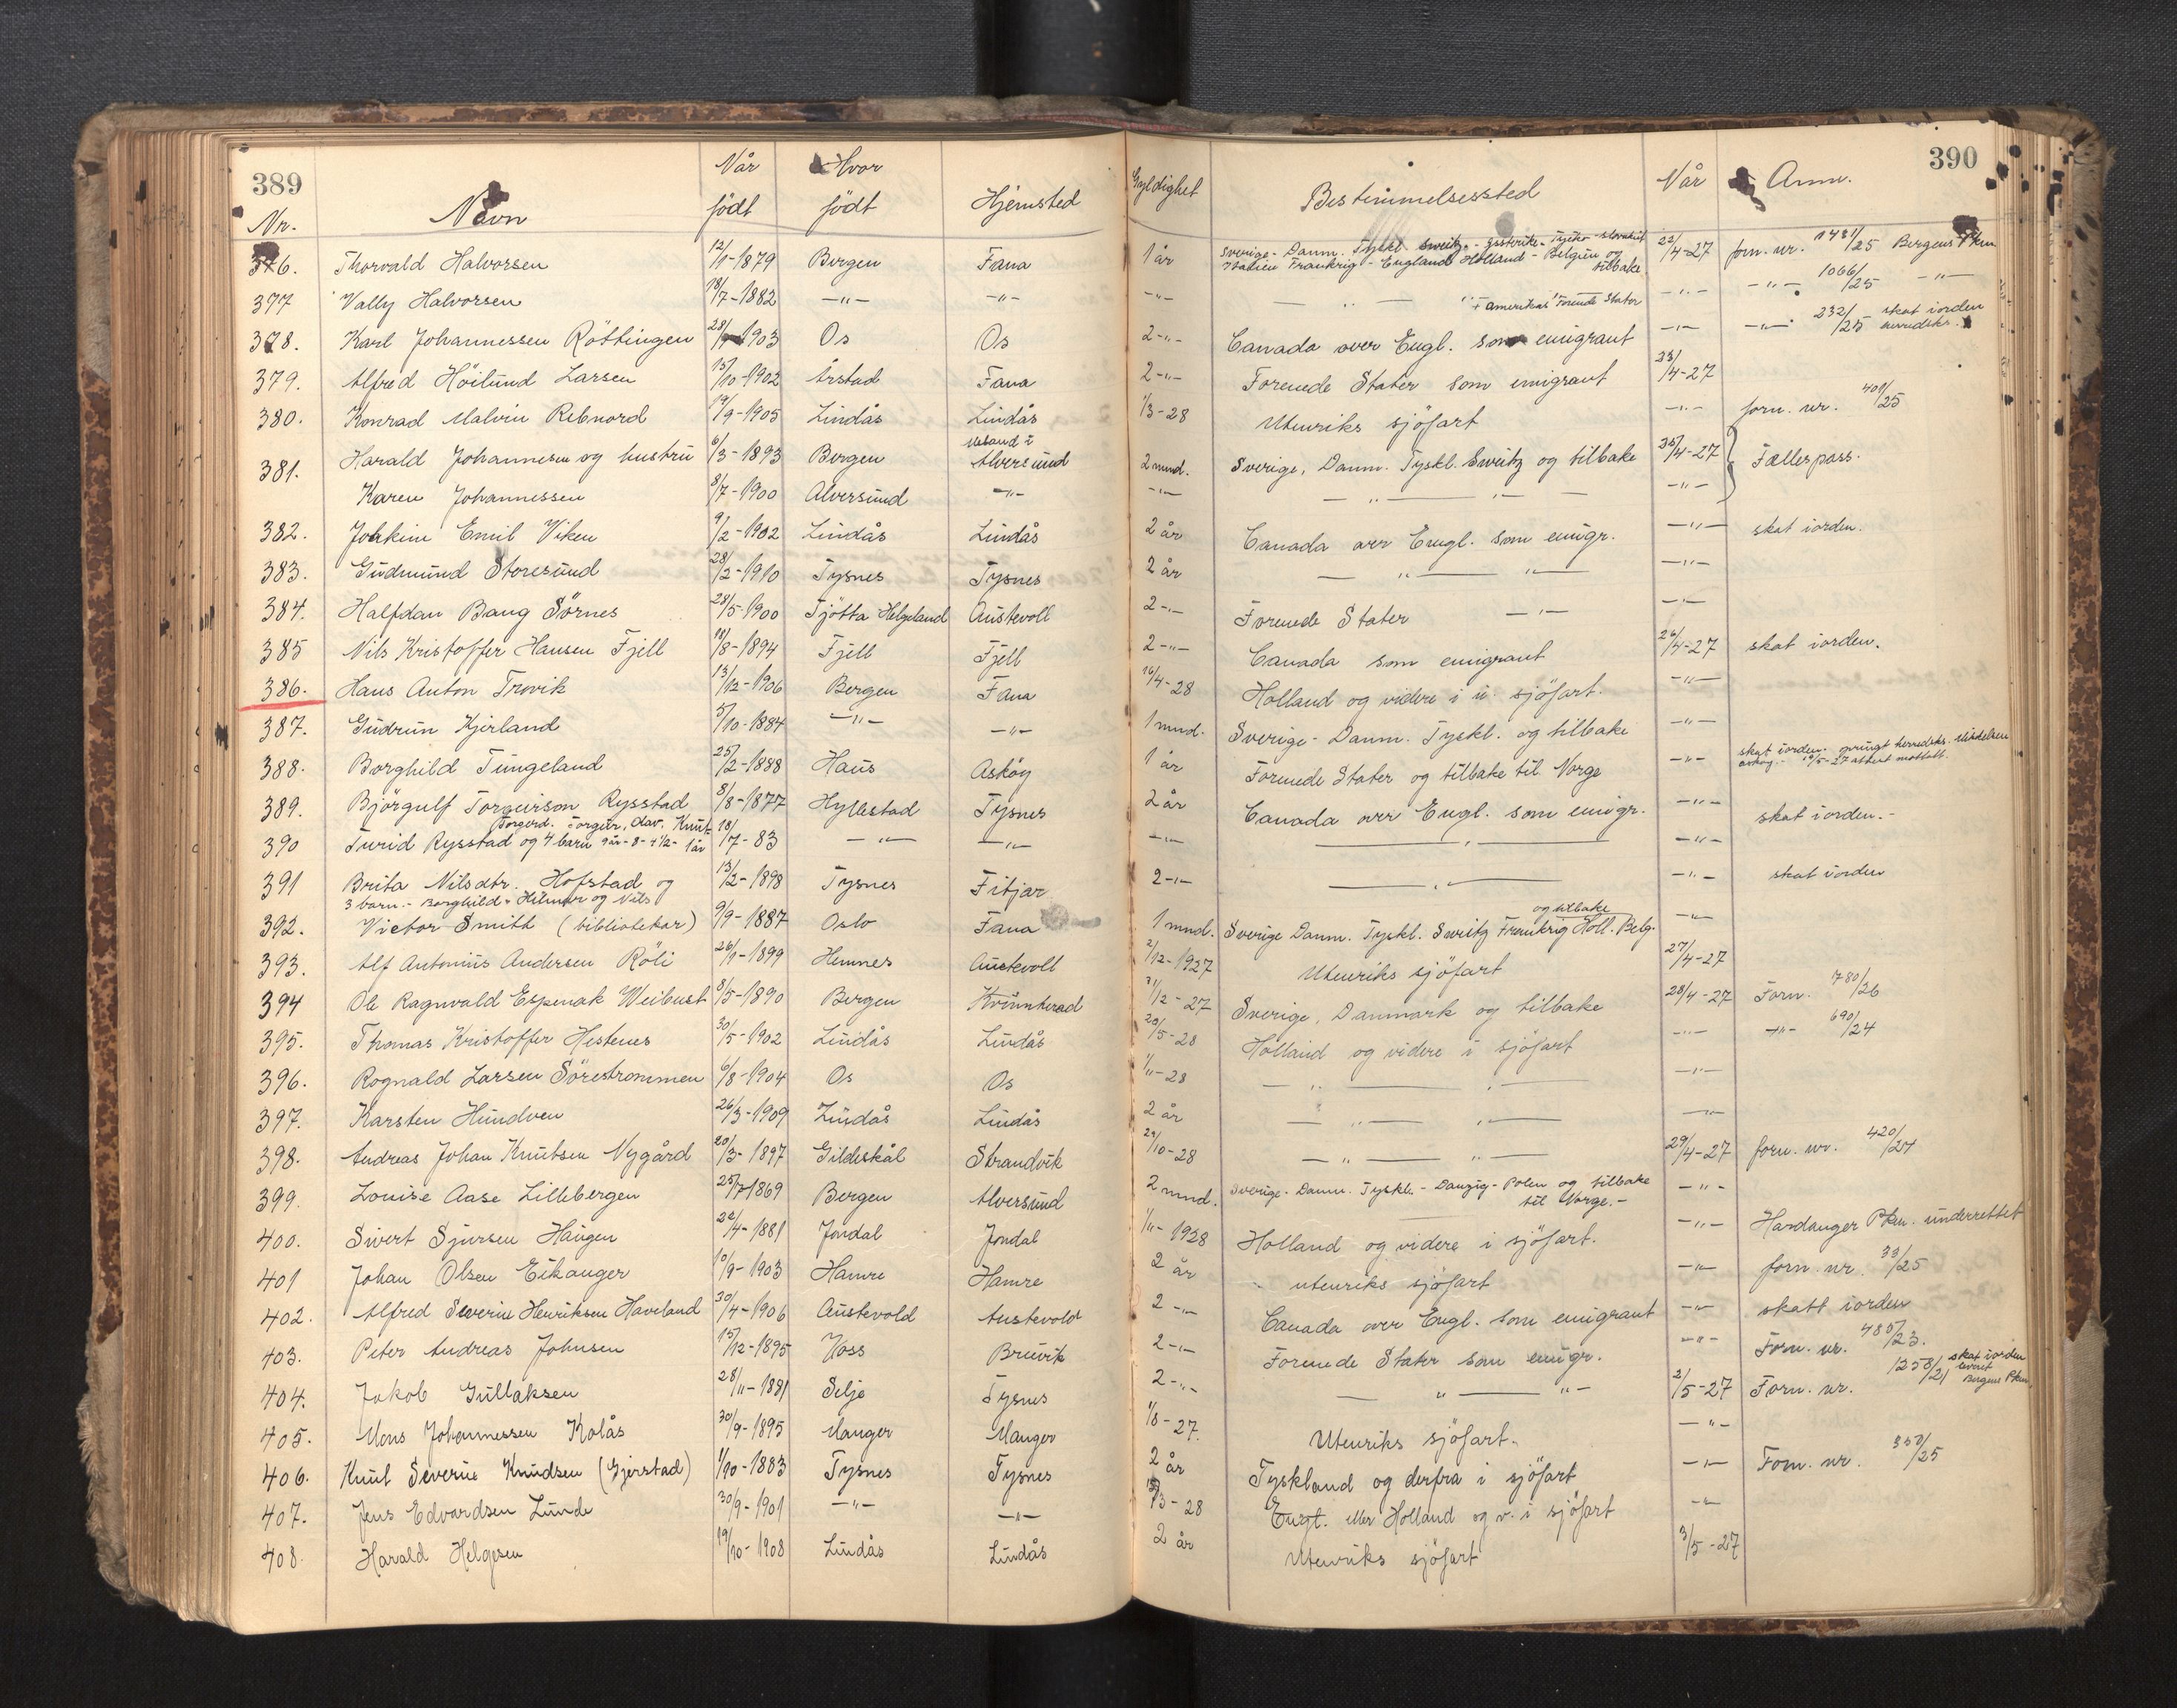 389
390
Nr. Navn Når født Hvor født Hjemsted Gyldighet Bestemmelsessted Når Anm.
376. Thorvald Halvorsen 12/1-1879 Bergen Fana 1 år Sverige - Danm. Tyskl. Sweitz. - Østerike - Tjeko-Slovakiet Italien Frankrig - England Holland - Belgien og tilbake 22/4-27 forn. nr. 1431/25 Bergens Pkm.
377 Vally Halvorsen 18/7-1882 -"- -"- -"- - " - " + Amerikas Forende Stater -"- -"- 1066/25 -"-
378. Karl Johannessen Röttingen 28/9-1903 Os Os 2-"- Canada over Engl. som emigrant -"- -"- 232/25 skat iorden
379. Alfred Höilund Larsen 15/10-1902 Årstad Fana 2-"- Forenede Stater som emigrant 23/4-27
380. Konrad Malvin Rebnord 19/9-1905 Lindås Lindås 1/3-28 Utenriks sjöfart -"- forn. nr. 401/25
381. Harald Johannesen og hustru 6/3-1893 Bergen Alversund 2 mnd. Sverige, Danm. Tyskl. Sweitz og tilbake 25/4-27 Fællespass.
Karen Johannessen 8/7-1900 Alversund -"- -"- - " - " - -"-
382. Joakim Emil Viken 9/2-1902 Lindås Lindås 2 år Canada over Engl. som emigr. -"- skat iorden.
383. Gudmund Storesund 28/2-1910 Tysnes Tysnes 2 år - " - " - -"-
384. Halfdan Bang Sörnes 28/5-1900 Tjötta Helgeland Austevoll 2-"- Forenede Stater -"- -"-
385 Nils Kristoffer Hansen Fjell 18/8-1894 Fjell Fjell 2-"- Canada som emigrant 26/4-27 skat iorden.
386. Hans Anton Trovik 13/12-1906 Bergen Fana 16/4-28 Holland og videre i u. sjöfart. -"-
387. Gudrun Kjerland 5/10-1884 -"- -"- 1 mnd. Sverige - Danm. Tyskl. og tilbake -"-
388. Borghild Tungeland 25/2-1888 Haus Asköy 1 år Forenede Stater og tilbake til Norge -"- skat iorden
389. Björgulf Torgeirson Rysstad 8/8-1877 Hyllestad Tysnes 2 år Canada over Engl. som emigr. -"- skat iorden.-
Torgerd. Torgeir, Olav. Knut-
390 Turid Rysstad og 4 barn 9 år - 8 - 4 1/2 - 1 år 18/7-83 -"- -"- -"- - " - -"-
391 Brita Nilsdtr. Hofstad og 13/2-1898 Tysnes Fitjar 2-"- - " - -"- skat iorden
3 barn. - Borghild - Hilmar og Nils
392. Victor Smith (bibliotekar) 9/9-1887 Oslo Fana 1 mnd. Sverige Danm. Tyskl. Sweitz Frankrig Holl. Belg. og tilbake -"-
393. Alf Antonius Andersen Röli 26/1-1899 Hemnes Austevoll 2/12-1927 Utenriks sjöfart 27/4-27
394 Ole Ragnvald Espenak Weibust 8/5-1890 Bergen Kvinnherad 31/12-27 Sverige, Danmark og tilbake 28/4-27 Forn. 780/26
395. Thomas Kristoffer Hestenes 30/5-1902 Lindås Lindås 20/5-28 Holland og videre i sjöfart -"- -"- 690/24
396. Rognald Larsen Sörestrommen 6/8-1904 Os Os 1/11-28 - " - " - -"-
397. Karsten Hundven 26/3-1909 Lindås Lindås 2 år - " - " - -"-
398. Andreas Johan Knutsen Nygård 20/3-1897 Gildeskål Strandvik 29/10-28 - " - " - 29/4-27 forn. nr. 420/24
399. Louise Aase Lillebergen 25/7-1869 Bergen Alversund 2 mnd. Sverige - Danm. Tyskl. - Danzig - Polen og tilbake til Norge.- -"-
400. Sivert Sjursen Haugen 22/4-1881 Jondal Jondal 1/11-1928 Holland og videre i sjöfart. -"- Hardanger Pkm. underrettet
401 Johan Olsen Eikanger 10/9-1903 Hamre Hamre 2 år utenriks sjöfart -"- forn. nr. 33/25
402. Alfred Severin Henriksen Haveland 30/4-1906 Austevold Austevold 2-"- Canada over Engl. som emigrant -"- skatt iorden
403. Peter Andreas Johnsen 15/12-1895 Voss Bruvik 2-"- Forenede Stater som emigr. -"- Forn. nr. 485/23.
404. Jakob Gullaksen 28/11-1881 Selje Tysnes 2-"- - " - " - 2/5-27 Forn. nr. 1258/21 skat iorden Bergens Pkm.
405. Mons Johannessen Kolås 30/9-1895 Manger Manger 1/8-27. Utenriks sjöfart. -"-
406. Knut Severin Knudsen (Gjerstad) 1/10-1883 Tysnes Tysnes 2 år Tyskland og derfra i sjöfart -"- Forn. nr. 350/25
407. Jens Edvardsen Lunde 30/9-1901 -"- -"- /3-28 Engl. eller Holland og v. i sjöfart -"-
408. Harald Helgesen 19/10-1908 Lindås Lindås 2 år Utenriks sjöfart 3/5-27